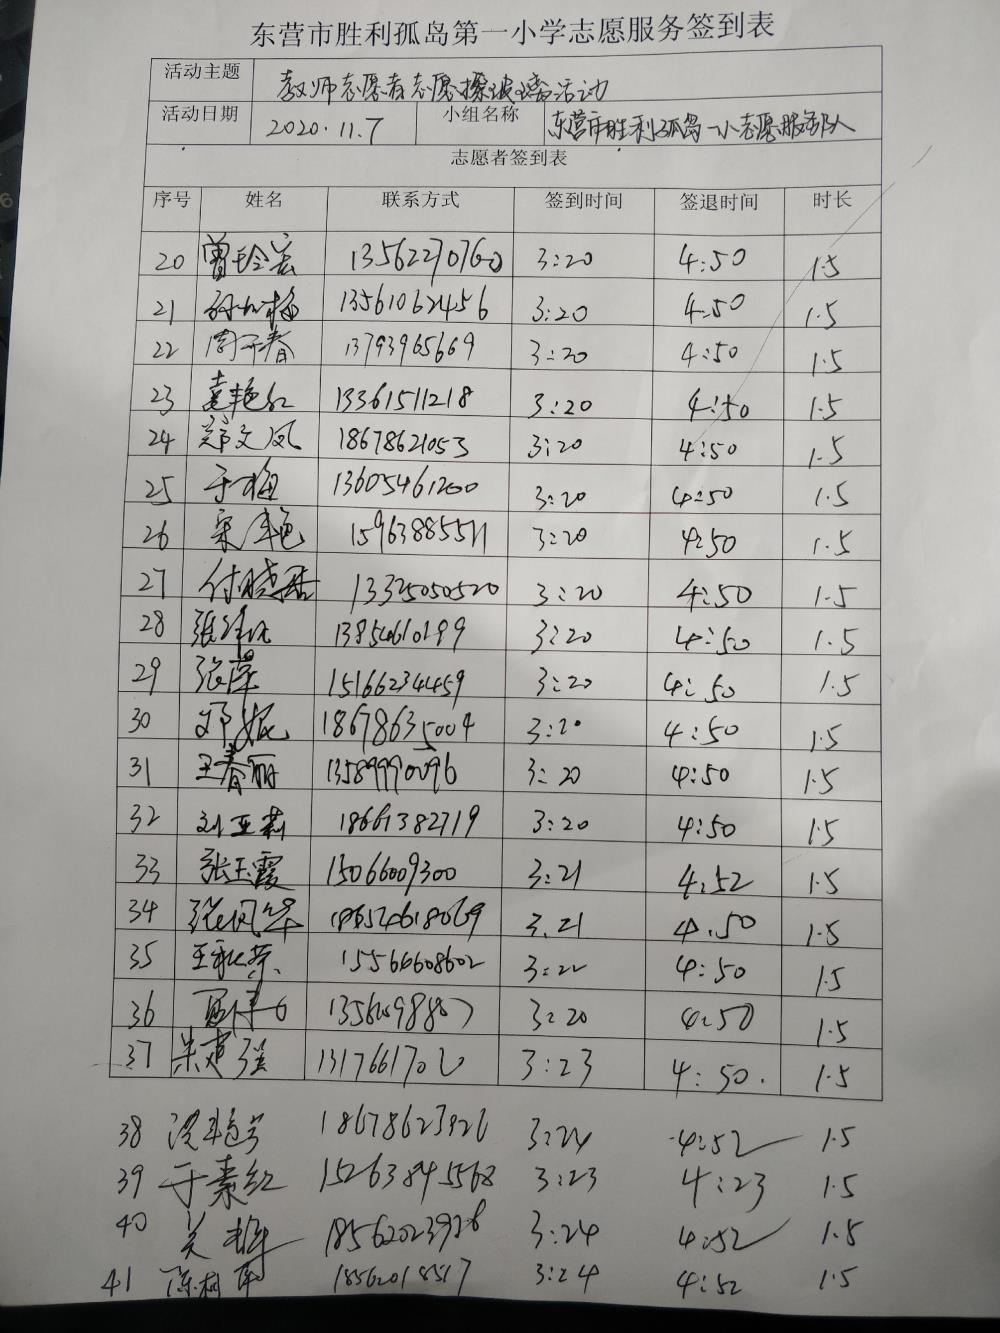 东营市胜利孤岛第一小学志愿服务签到表
活动主题 教师志愿者志愿擦玻璃活动
活动日期 2020.11.7 小组名称 东营市胜利孤岛一小志愿服务队
志愿者签到表
序号 姓名 联系方式 签到时间 签退时间 时长
20 曾玲芸 13562270760 3:20 4:50 1.5
21 13561062456 3:20 4:50 1.5
22 周开春 13793965669 3:20 4:50 1.5
23 袁艳红 13361511218 3:20 4:50 1.5
24 郑文凤 18678621053 3:20 4:50 1.5
25 于梅 13605461200 3:20 4:50 1.5
26 宋艳 15963885511 3:20 4:50 1.5
27 付晓 13325050520 3:20 4:50 1.5
28 张 13854610199 3:20 4:50 1.5
29 张萍 15166234459 3:20 4:50 1.5
30 邓妮 18678635004 3:20 4:50 1.5
31 王春丽 13589990096 3:20 4:50 1.5
32 刘亚莉 18661382719 3:20 4:50 1.5
33 张玉霞 15066009300 3:21 4:52 1.5
34 张凤华 18654618069 3.21 4.50 1.5
35 王秋芳 15566608602 3:22 4:50 1.5
36 3:20 4:50 1.5
37 朱建强 3:23 4:50. 1.5
38 18678623926 3:24 4:52 1.5
39 于素红 15263845568 3:23 4:23 1.5
40 18562023926 3:24 4:52 1.5
41 陈 18562018517 3:24 4:52 1.5